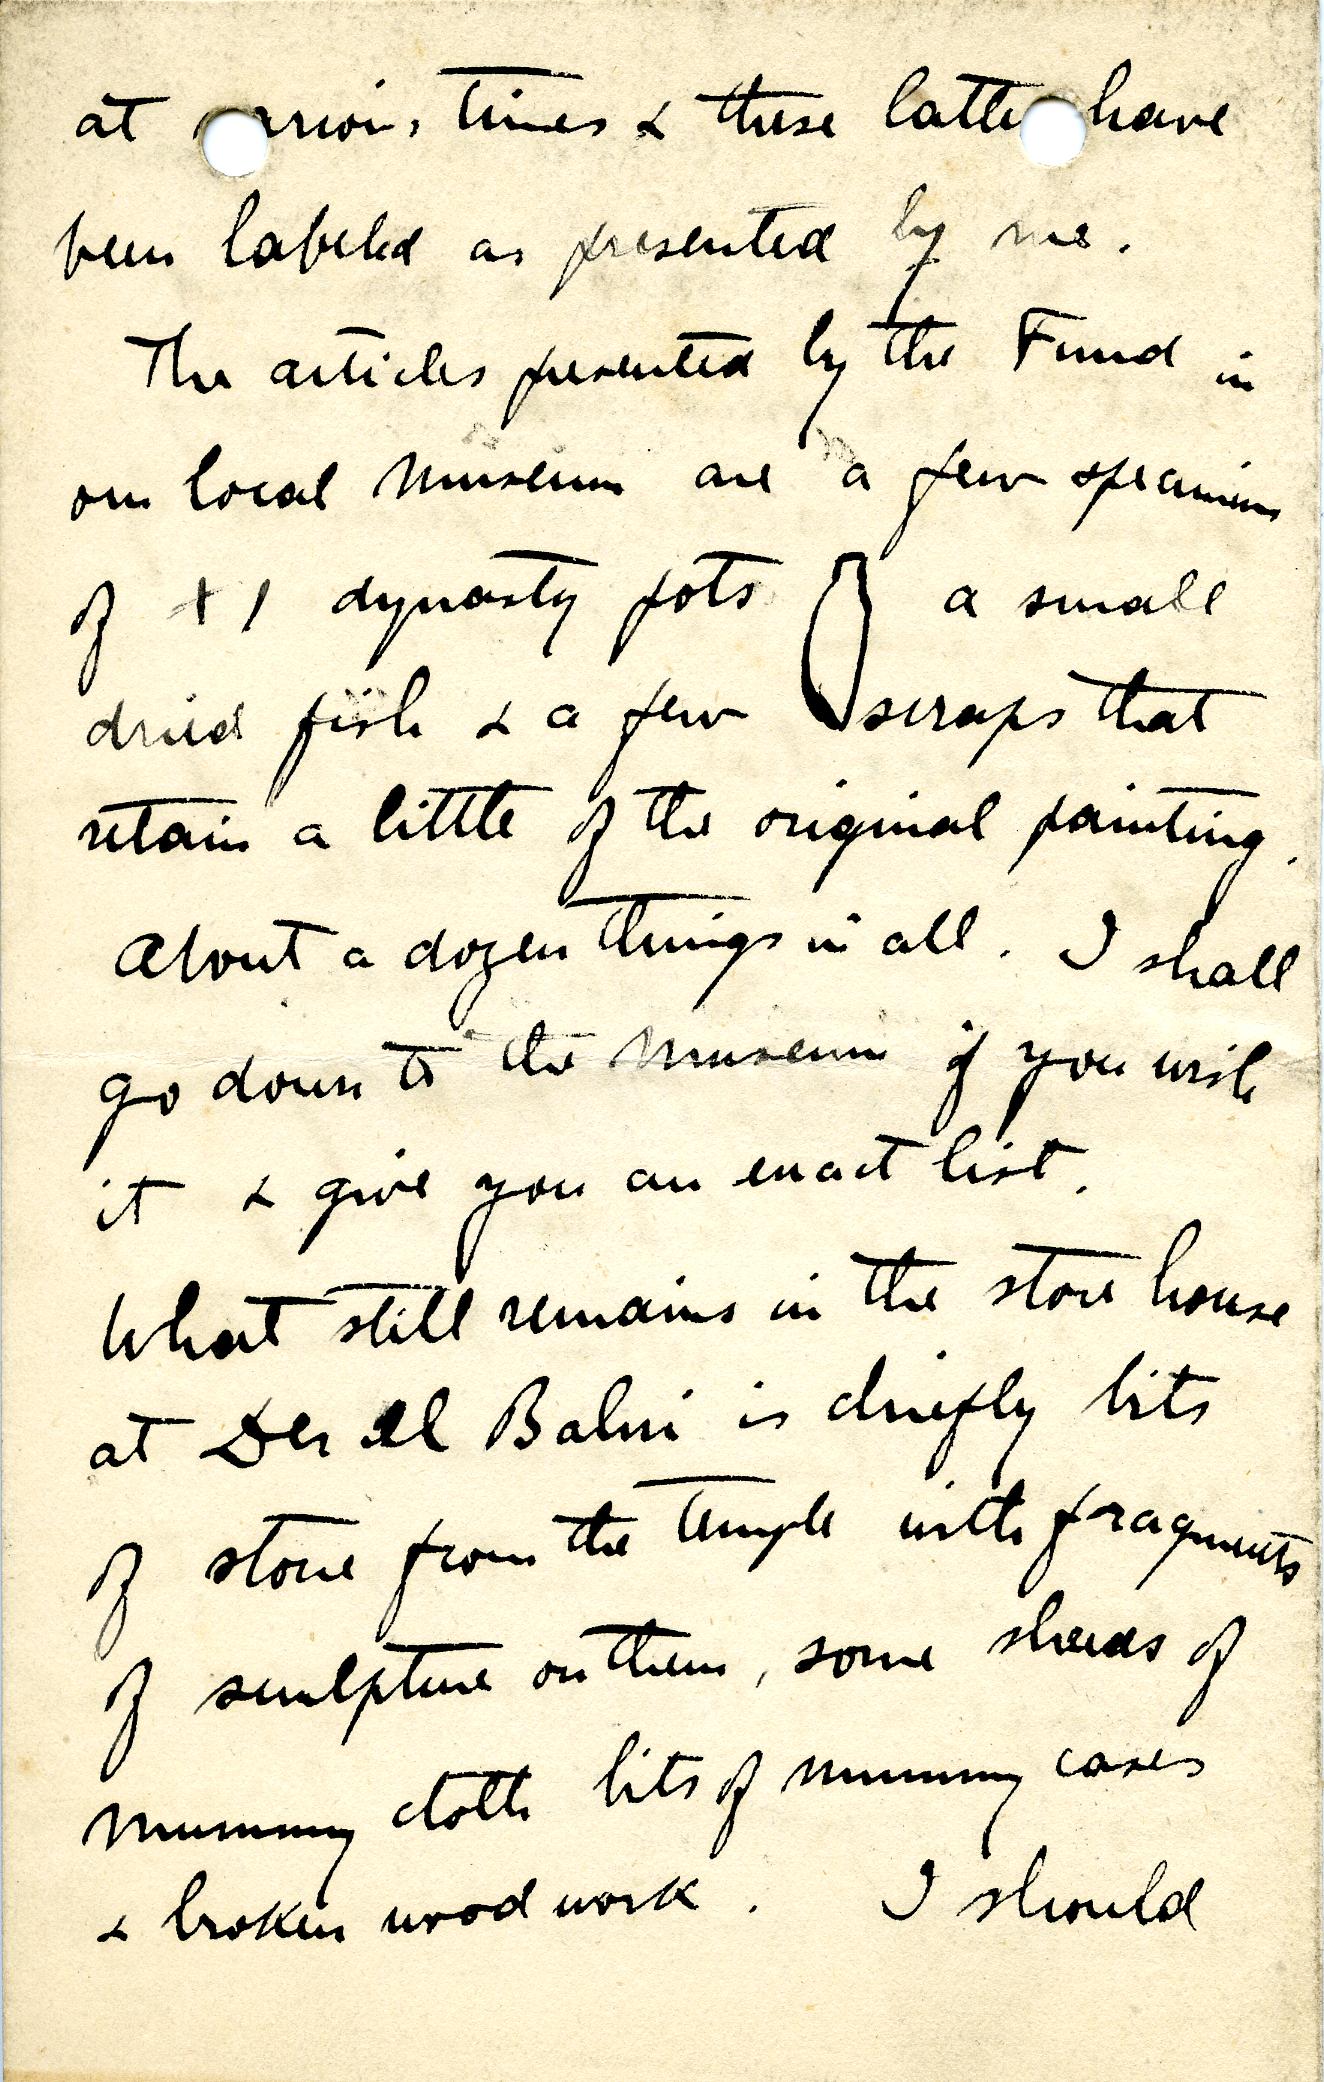 at various times & these latter have
been labeled as presented by me.
The articles presented by the Fund in
our local Museum are a few specimens
of XI dynasty pots a small
dried fish & a few scraps that
retain a little of the original painting.
About a dozen things in all. I shall
go down to the Museum if you wish
it & give you an exact list.
What still remains in the store house
at Der el Bahri is chiefly bits
of stone from the temple with fragments
of sculpture on them, some shreds of
mummy cloth bits of mummy cases
& broken wood work. I should